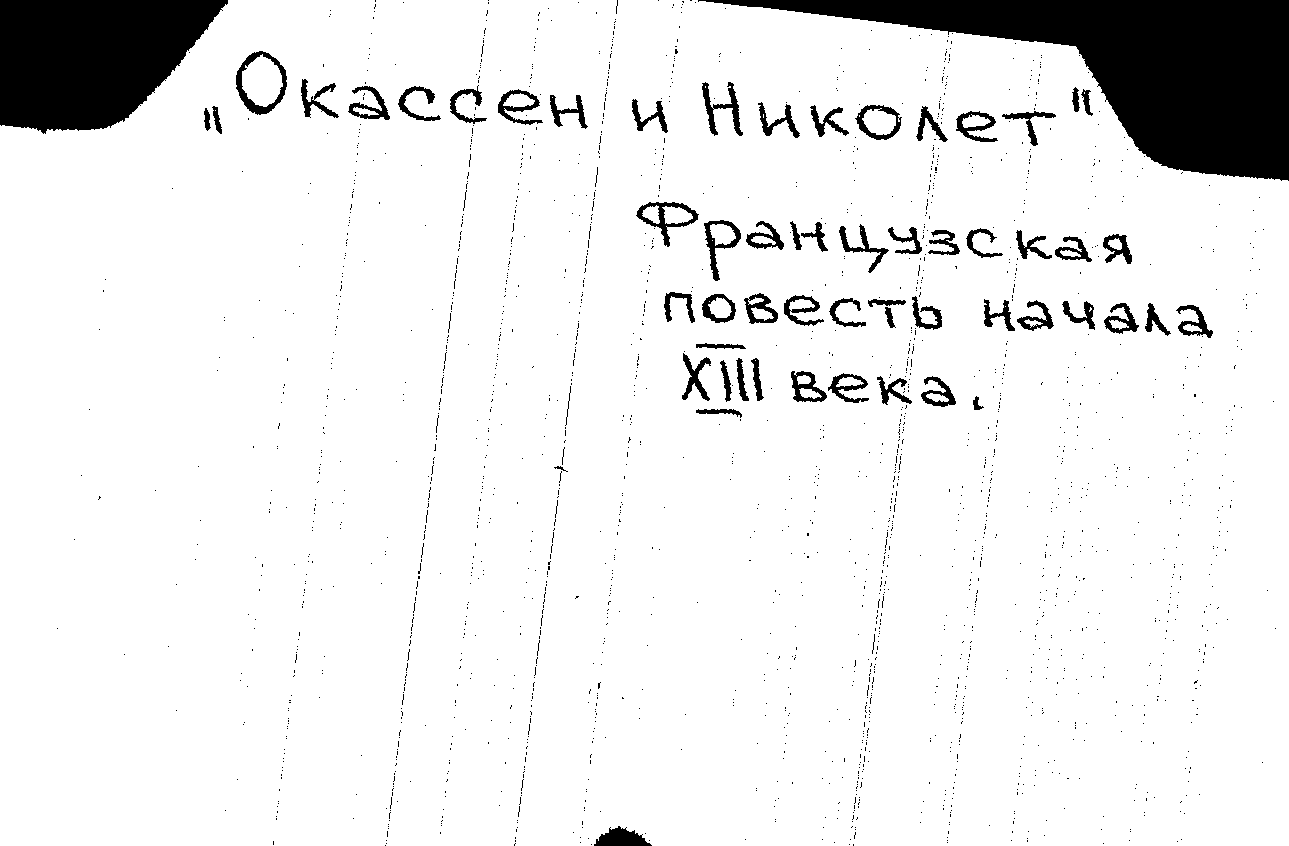 „Окассен и Николет"
Французская
повесть начала
XIII века.